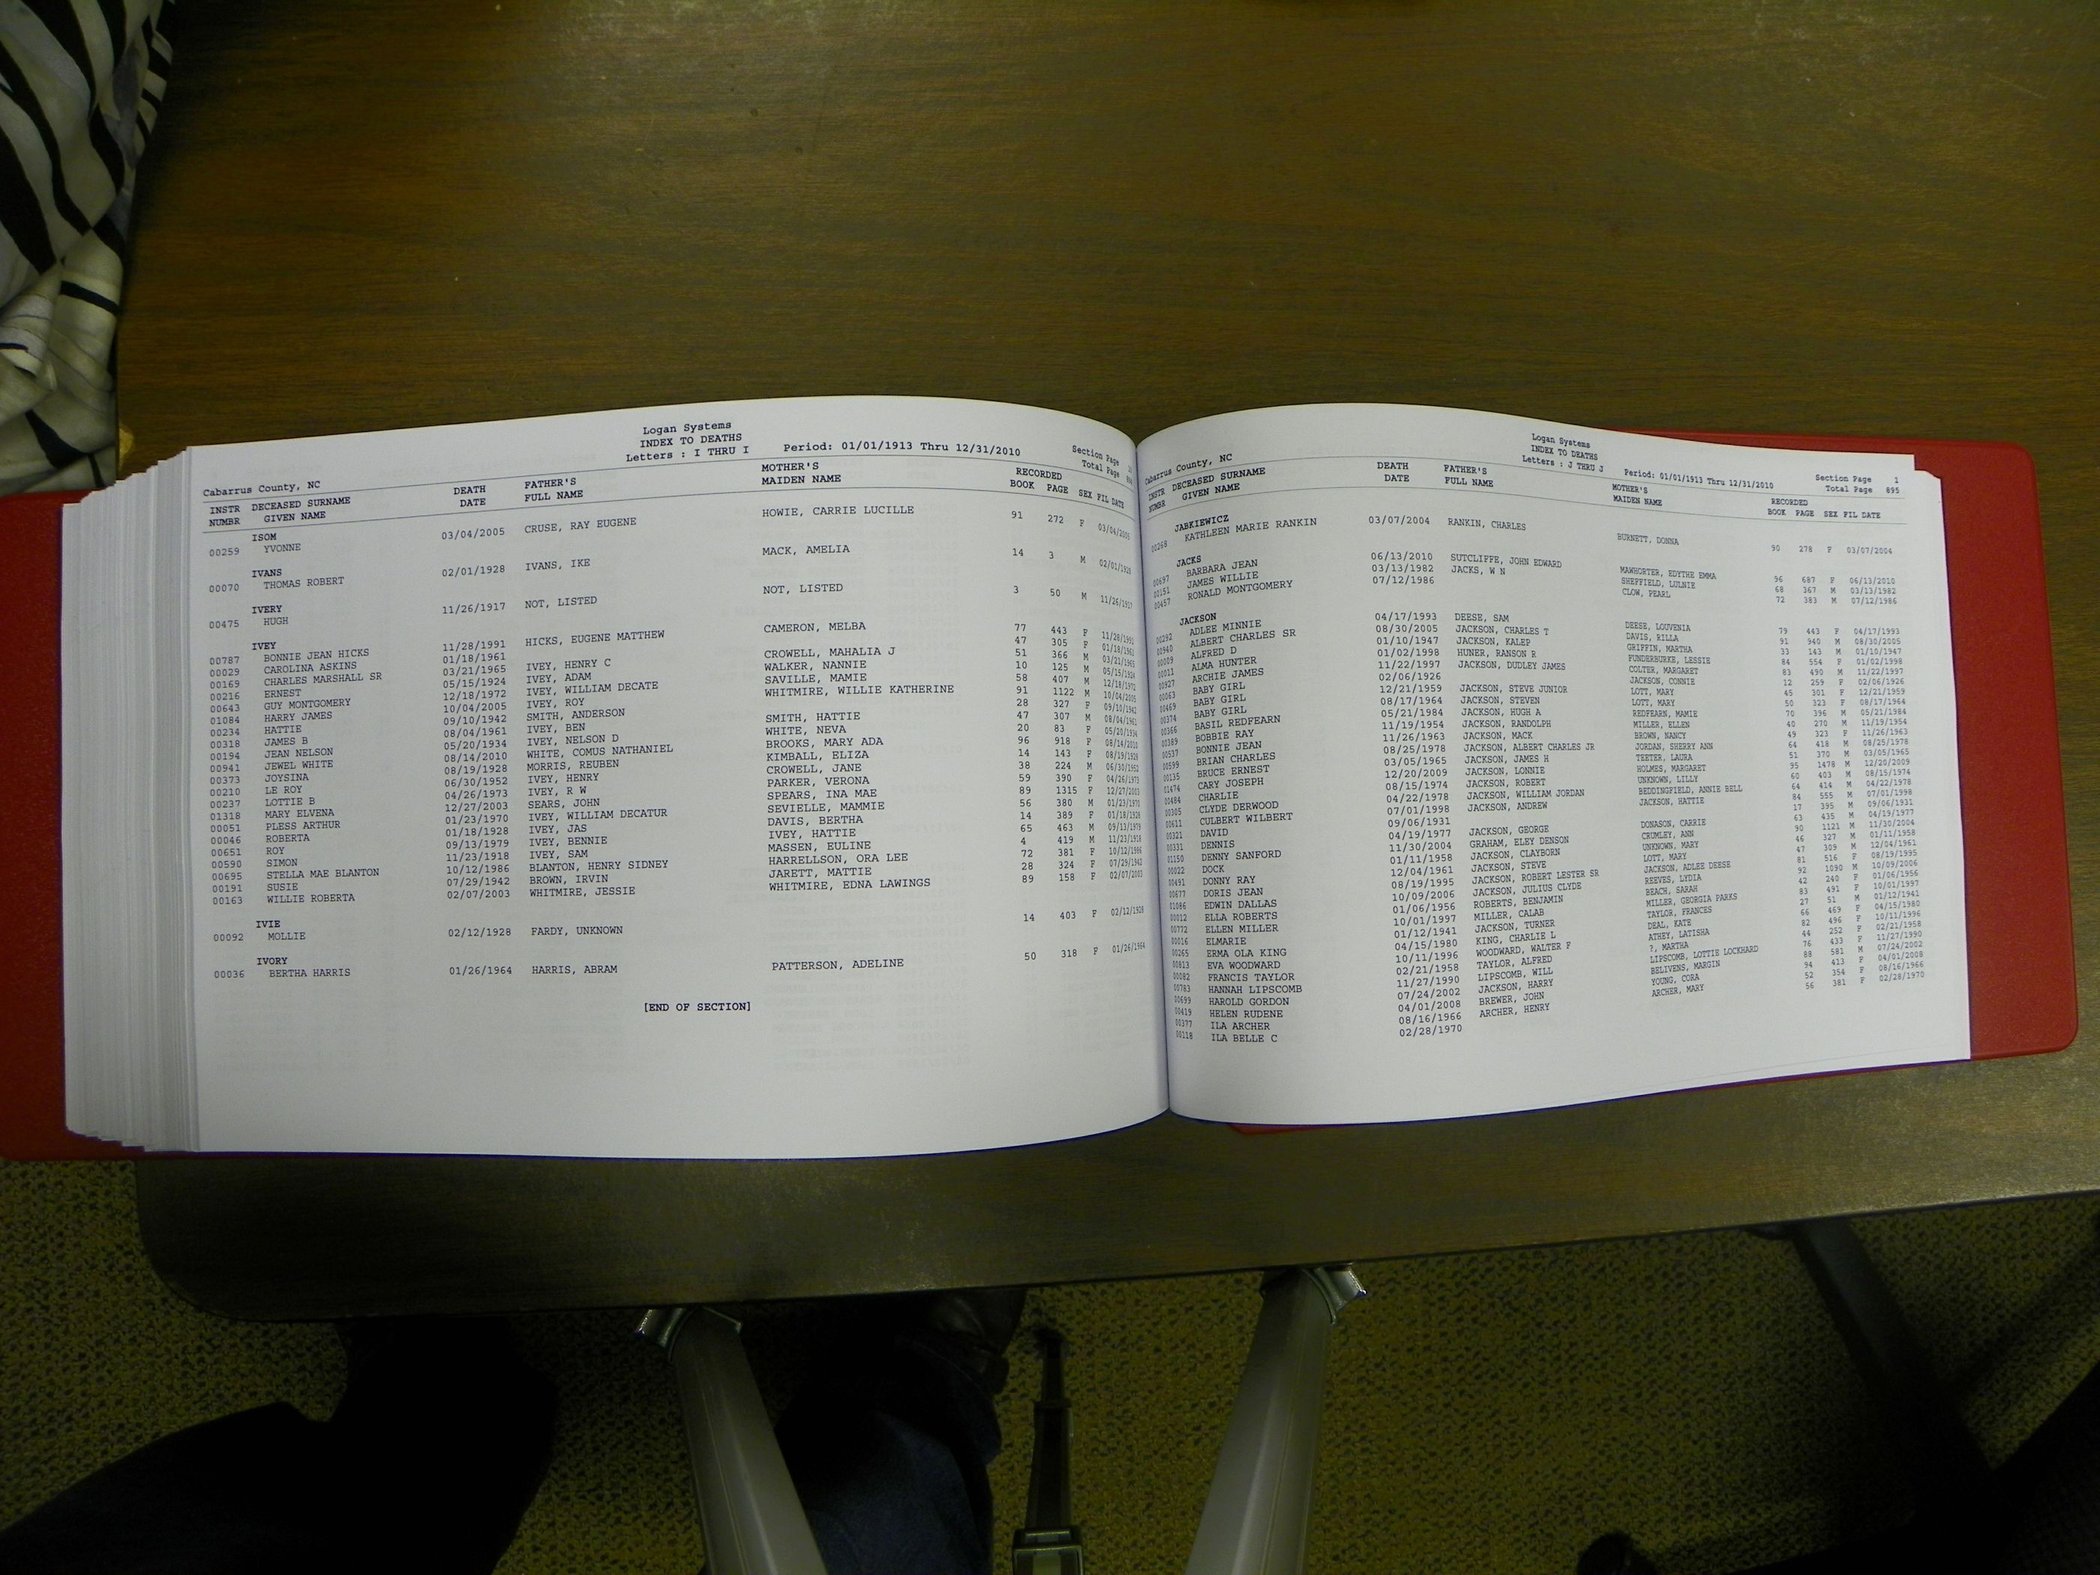 Logan Systems
INDEX TO DEATHS
Letters : I THRU I Period: 01/01/1913 Thru 12/31/2010
Cabarrus County, NC Section Page
Total Page
INSTR DECEASED SURNAME DEATH FATHER'S MOTHER'S RECORDED
NUMBR GIVEN NAME DATE FULL NAME MAIDEN NAME BOOK PAGE SEX FIL DATE
ISOM
00259 YVONNE 03/04/2005 CRUSE, RAY EUGENE HOWIE, CARRIE LUCILLE 91 272 F 03/04/2005
IVANS
00070 THOMAS ROBERT 02/01/1928 IVANS, IKE MACK, AMELIA 14 3 M 02/01/1928
IVERY
00475 HUGH 11/26/1917 NOT, LISTED NOT, LISTED 3 50 M 11/26/1917
IVEY
00787 BONNIE JEAN HICKS 11/28/1991 HICKS, EUGENE MATTHEW CAMERON, MELBA 77 443 F 11/28/1991
00029 CAROLINA ASKINS 01/18/1961 47 305 F 01/18/1961
00169 CHARLES MARSHALL SR 03/21/1965 IVEY, HENRY C CROWELL, MAHALIA J 51 366 M 03/21/1965
00216 ERNEST 05/15/1924 IVEY, ADAM WALKER, NANNIE 10 125 M 05/15/1924
00643 GUY MONTGOMERY 12/18/1972 IVEY, WILLIAM DECATE SAVILLE, MAMIE 58 407 M 12/18/1972
01084 HARRY JAMES 10/04/2005 IVEY, ROY WHITMIRE, WILLIE KATHERINE 91 1122 M 10/04/2005
00234 HATTIE 09/10/1942 SMITH, ANDERSON 28 327 F 09/10/1942
00318 JAMES B 08/04/1961 IVEY, BEN SMITH, HATTIE 47 307 M 08/04/1961
00194 JEAN NELSON 05/20/1934 IVEY, NELSON D WHITE, NEVA 20 83 F 05/20/1934
00941 JEWEL WHITE 08/14/2010 WHITE, COMUS NATHANIEL BROOKS, MARY ADA 96 918 F 08/14/2010
00373 JOYSINA 08/19/1928 MORRIS, REUBEN KIMBALL, ELIZA 14 143 F 08/19/1928
00210 LE ROY 06/30/1952 IVEY, HENRY CROWELL, JANE 38 224 M 06/30/1952
00237 LOTTIE B 04/26/1973 IVEY, R W PARKER, VERONA 59 390 F 04/26/1973
01318 MARY ELVENA 12/27/2003 SEARS, JOHN SPEARS, INA MAE 89 1315 F 12/27/2003
00051 PLESS ARTHUR 01/23/1970 IVEY, WILLIAM DECATUR SEVIELLE, MAMMIE 56 380 M 01/23/1970
00046 ROBERTA 01/18/1928 IVEY, JAS DAVIS, BERTHA 14 389 F 01/18/1928
00651 ROY 09/13/1979 IVEY, BENNIE IVEY, HATTIE 65 463 M 09/13/1979
00590 SIMON 11/23/1918 IVEY, SAM MASSEN, EULINE 4 419 M 11/23/1918
00695 STELLA MAE BLANTON 10/12/1986 BLANTON, HENRY SIDNEY HARRELLSON, ORA LEE 72 381 F 10/12/1986
00191 SUSIE 07/29/1942 BROWN, IRVIN JARETT, MATTIE 28 324 F 07/29/1942
00163 WILLIE ROBERTA 02/07/2003 WHITMIRE, JESSIE WHITMIRE, EDNA LAWINGS 89 158 F 02/07/2003
IVIE
00092 MOLLIE 02/12/1928 FARDY, UNKNOWN 14 403 F 02/12/1928
IVORY
00036 BERTHA HARRIS 01/26/1964 HARRIS, ABRAM PATTERSON, ADELINE 50 318 F 01/26/1964
[END OF SECTION]
Logan Systems
INDEX TO DEATHS
Letters : J THRU J Period: 01/01/1913 Thru 12/31/2010
Cabarrus County, NC Section Page 1
Total Page 895
INSTR DECEASED SURNAME DEATH FATHER'S MOTHER'S RECORDED
NUMBR GIVEN NAME DATE FULL NAME MAIDEN NAME BOOK PAGE SEX FIL DATE
JABKIEWICZ
00268 KATHLEEN MARIE RANKIN 03/07/2004 RANKIN, CHARLES BURNETT, DONNA 90 278 F 03/07/2004
JACKS
00697 BARBARA JEAN 06/13/2010 SUTCLIFFE, JOHN EDWARD MAWHORTER, EDYTHE EMMA 96 687 F 06/13/2010
00151 JAMES WILLIE 03/13/1982 JACKS, W N SHEFFIELD, LULNIE 68 367 M 03/13/1982
00457 RONALD MONTGOMERY 07/12/1986 CLOW, PEARL 72 383 M 07/12/1986
JACKSON
00292 ADLEE MINNIE 04/17/1993 DEESE, SAM DEESE, LOUVENIA 79 443 F 04/17/1993
00940 ALBERT CHARLES SR 08/30/2005 JACKSON, CHARLES T DAVIS, RILLA 91 940 M 08/30/2005
00009 ALFRED D 01/10/1947 JACKSON, KALEP GRIFFIN, MARTHA 33 143 M 01/10/1947
00011 ALMA HUNTER 01/02/1998 HUNER, RANSON R FUNDERBURKE, LESSIE 84 554 F 01/02/1998
00927 ARCHIE JAMES 11/22/1997 JACKSON, DUDLEY JAMES COLTER, MARGARET 83 490 M 11/22/1997
00063 BABY GIRL 02/06/1926 JACKSON, CONNIE 12 259 F 02/06/1926
00469 BABY GIRL 12/21/1959 JACKSON, STEVE JUNIOR LOTT, MARY 45 301 F 12/21/1959
00374 BABY GIRL 08/17/1964 JACKSON, STEVEN LOTT, MARY 50 323 F 08/17/1964
00366 BASIL REDFEARN 05/21/1984 JACKSON, HUGH A REDFEARN, MAMIE 70 396 M 05/21/1984
00389 BOBBIE RAY 11/19/1954 JACKSON, RANDOLPH MILLER, ELLEN 40 270 M 11/19/1954
00537 BONNIE JEAN 11/26/1963 JACKSON, MACK BROWN, NANCY 49 323 F 11/26/1963
00599 BRIAN CHARLES 08/25/1978 JACKSON, ALBERT CHARLES JR JORDAN, SHERRY ANN 64 418 M 08/25/1978
00135 BRUCE ERNEST 03/05/1965 JACKSON, JAMES H TEETER, LAURA 51 370 M 03/05/1965
01474 CARY JOSEPH 12/20/2009 JACKSON, LONNIE HOLMES, MARGARET 95 1478 M 12/20/2009
00484 CHARLIE 08/15/1974 JACKSON, ROBERT UNKNOWN, LILLY 60 403 M 08/15/1974
00305 CLYDE DERWOOD 04/22/1978 JACKSON, WILLIAM JORDAN BEDDINGFIELD, ANNIE BELL 64 414 M 04/22/1978
00611 CULBERT WILBERT 07/01/1998 JACKSON, ANDREW JACKSON, HATTIE 84 555 M 07/01/1998
00321 DAVID 09/06/1931 17 395 M 09/06/1931
00331 DENNIS 04/19/1977 JACKSON, GEORGE DONASON, CARRIE 63 435 M 04/19/1977
01150 DENNY SANFORD 11/30/2004 GRAHAM, ELEY DENSON CRUMLEY, ANN 90 1121 M 11/30/2004
00022 DOCK 01/11/1958 JACKSON, CLAYBORN UNKNOWN, MARY 46 327 M 01/11/1958
00491 DONNY RAY 12/04/1961 JACKSON, STEVE LOTT, MARY 47 309 M 12/04/1961
00677 DORIS JEAN 08/19/1995 JACKSON, ROBERT LESTER SR JACKSON, ADLEE DEESE 81 516 F 08/19/1995
01086 EDWIN DALLAS 10/09/2006 JACKSON, JULIUS CLYDE REEVES, LYDIA 92 1090 M 10/09/2006
00012 ELLA ROBERTS 01/06/1956 ROBERTS, BENJAMIN BEACH, SARAH 42 240 F 01/06/1956
00772 ELLEN MILLER 10/01/1997 MILLER, CALAB MILLER, GEORGIA PARKS 83 491 F 10/01/1997
00016 ELMARIE 01/12/1941 JACKSON, TURNER TAYLOR, FRANCES 27 51 M 01/12/1941
00265 ERMA OLA KING 04/15/1980 KING, CHARLIE L DEAL, KATE 66 469 F 04/15/1980
00813 EVA WOODWARD 10/11/1996 WOODWARD, WALTER F ATHEY, LATISHA 82 496 F 10/11/1996
00082 FRANCIS TAYLOR 02/21/1958 TAYLOR, ALFRED ?, MARTHA 44 252 F 02/21/1958
00783 HANNAH LIPSCOMB 11/27/1990 LIPSCOMB, WILL LIPSCOMB, LOTTIE LOCKHARD 76 433 F 11/27/1990
00699 HAROLD GORDON 07/24/2002 JACKSON, HARRY BELIVENS, MARGIN 88 581 M 07/24/2002
00419 HELEN RUDENE 04/01/2008 BREWER, JOHN YOUNG, CORA 94 413 F 04/01/2008
00377 ILA ARCHER 08/16/1966 ARCHER, HENRY ARCHER, MARY 52 354 F 08/16/1966
00118 ILA BELLE C 02/28/1970 56 381 F 02/28/1970